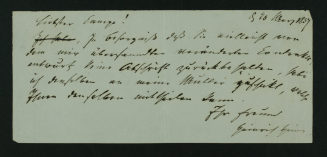 Liebster Campe!
d 20 März 1837
In Besorgniß daß Sie vielleicht von
dem mir übersandten veränderten Contrakt-
entwurf keine Abschrift zurückbehalten, habe
ich denselben an meine Mutter geschickt, welche
Ihnen denselben mittheilen kann.
Ihr Freund
Heinrich Heine